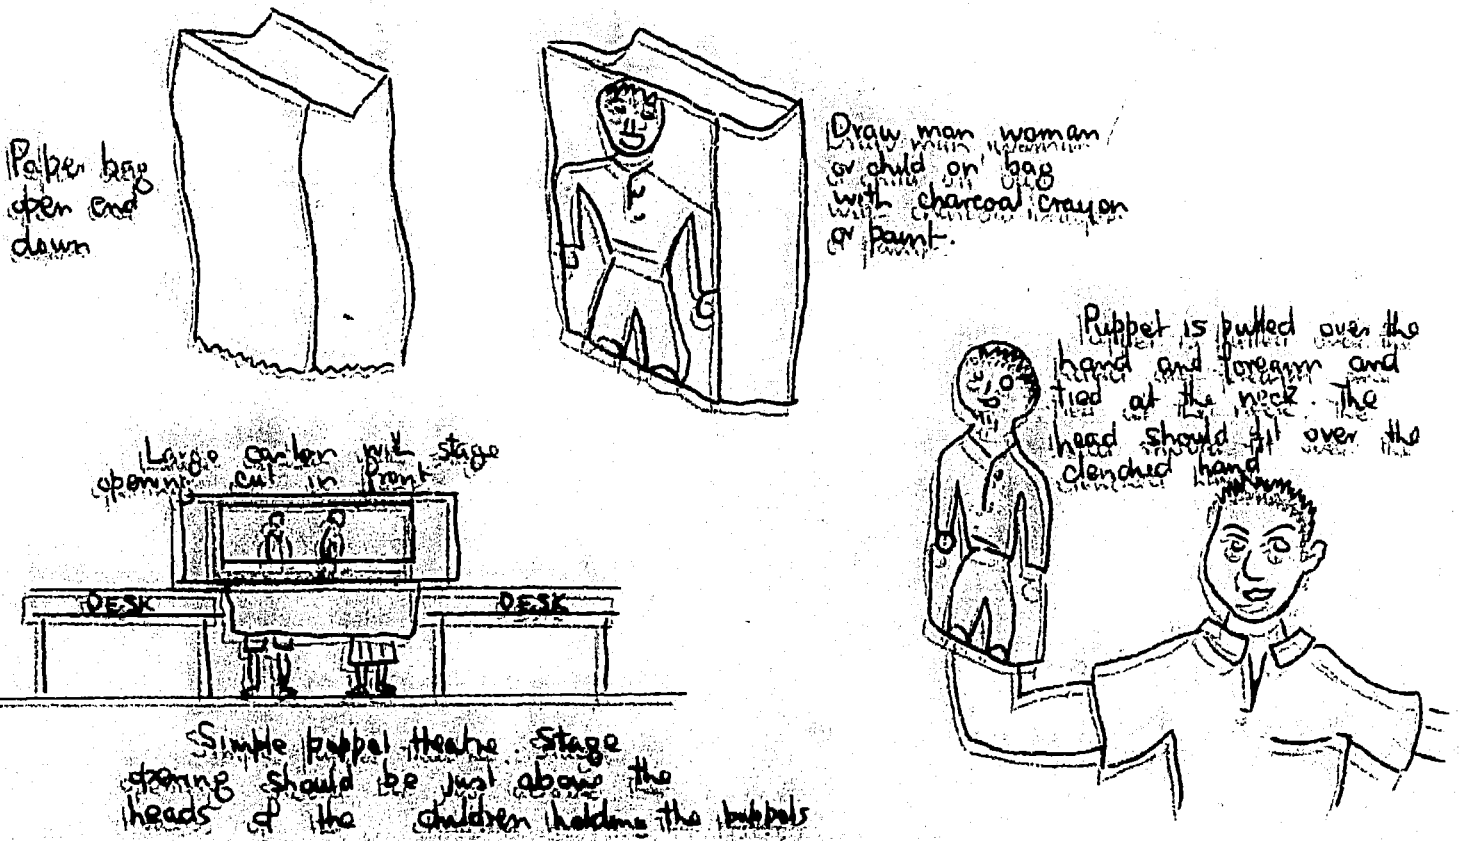 Paper bag
open end
down
Draw man woman
or child on bag
with charcoal crayon
or paint.
Puppet is pulled over the
hand and forearm and
tied at the neck. The
head should fit over the
clenched hand
Large carton with stage
opening cut in front
DESK
DESK
Simple puppet theatre. Stage
opening should be just above the
heads of the children holding the puppets